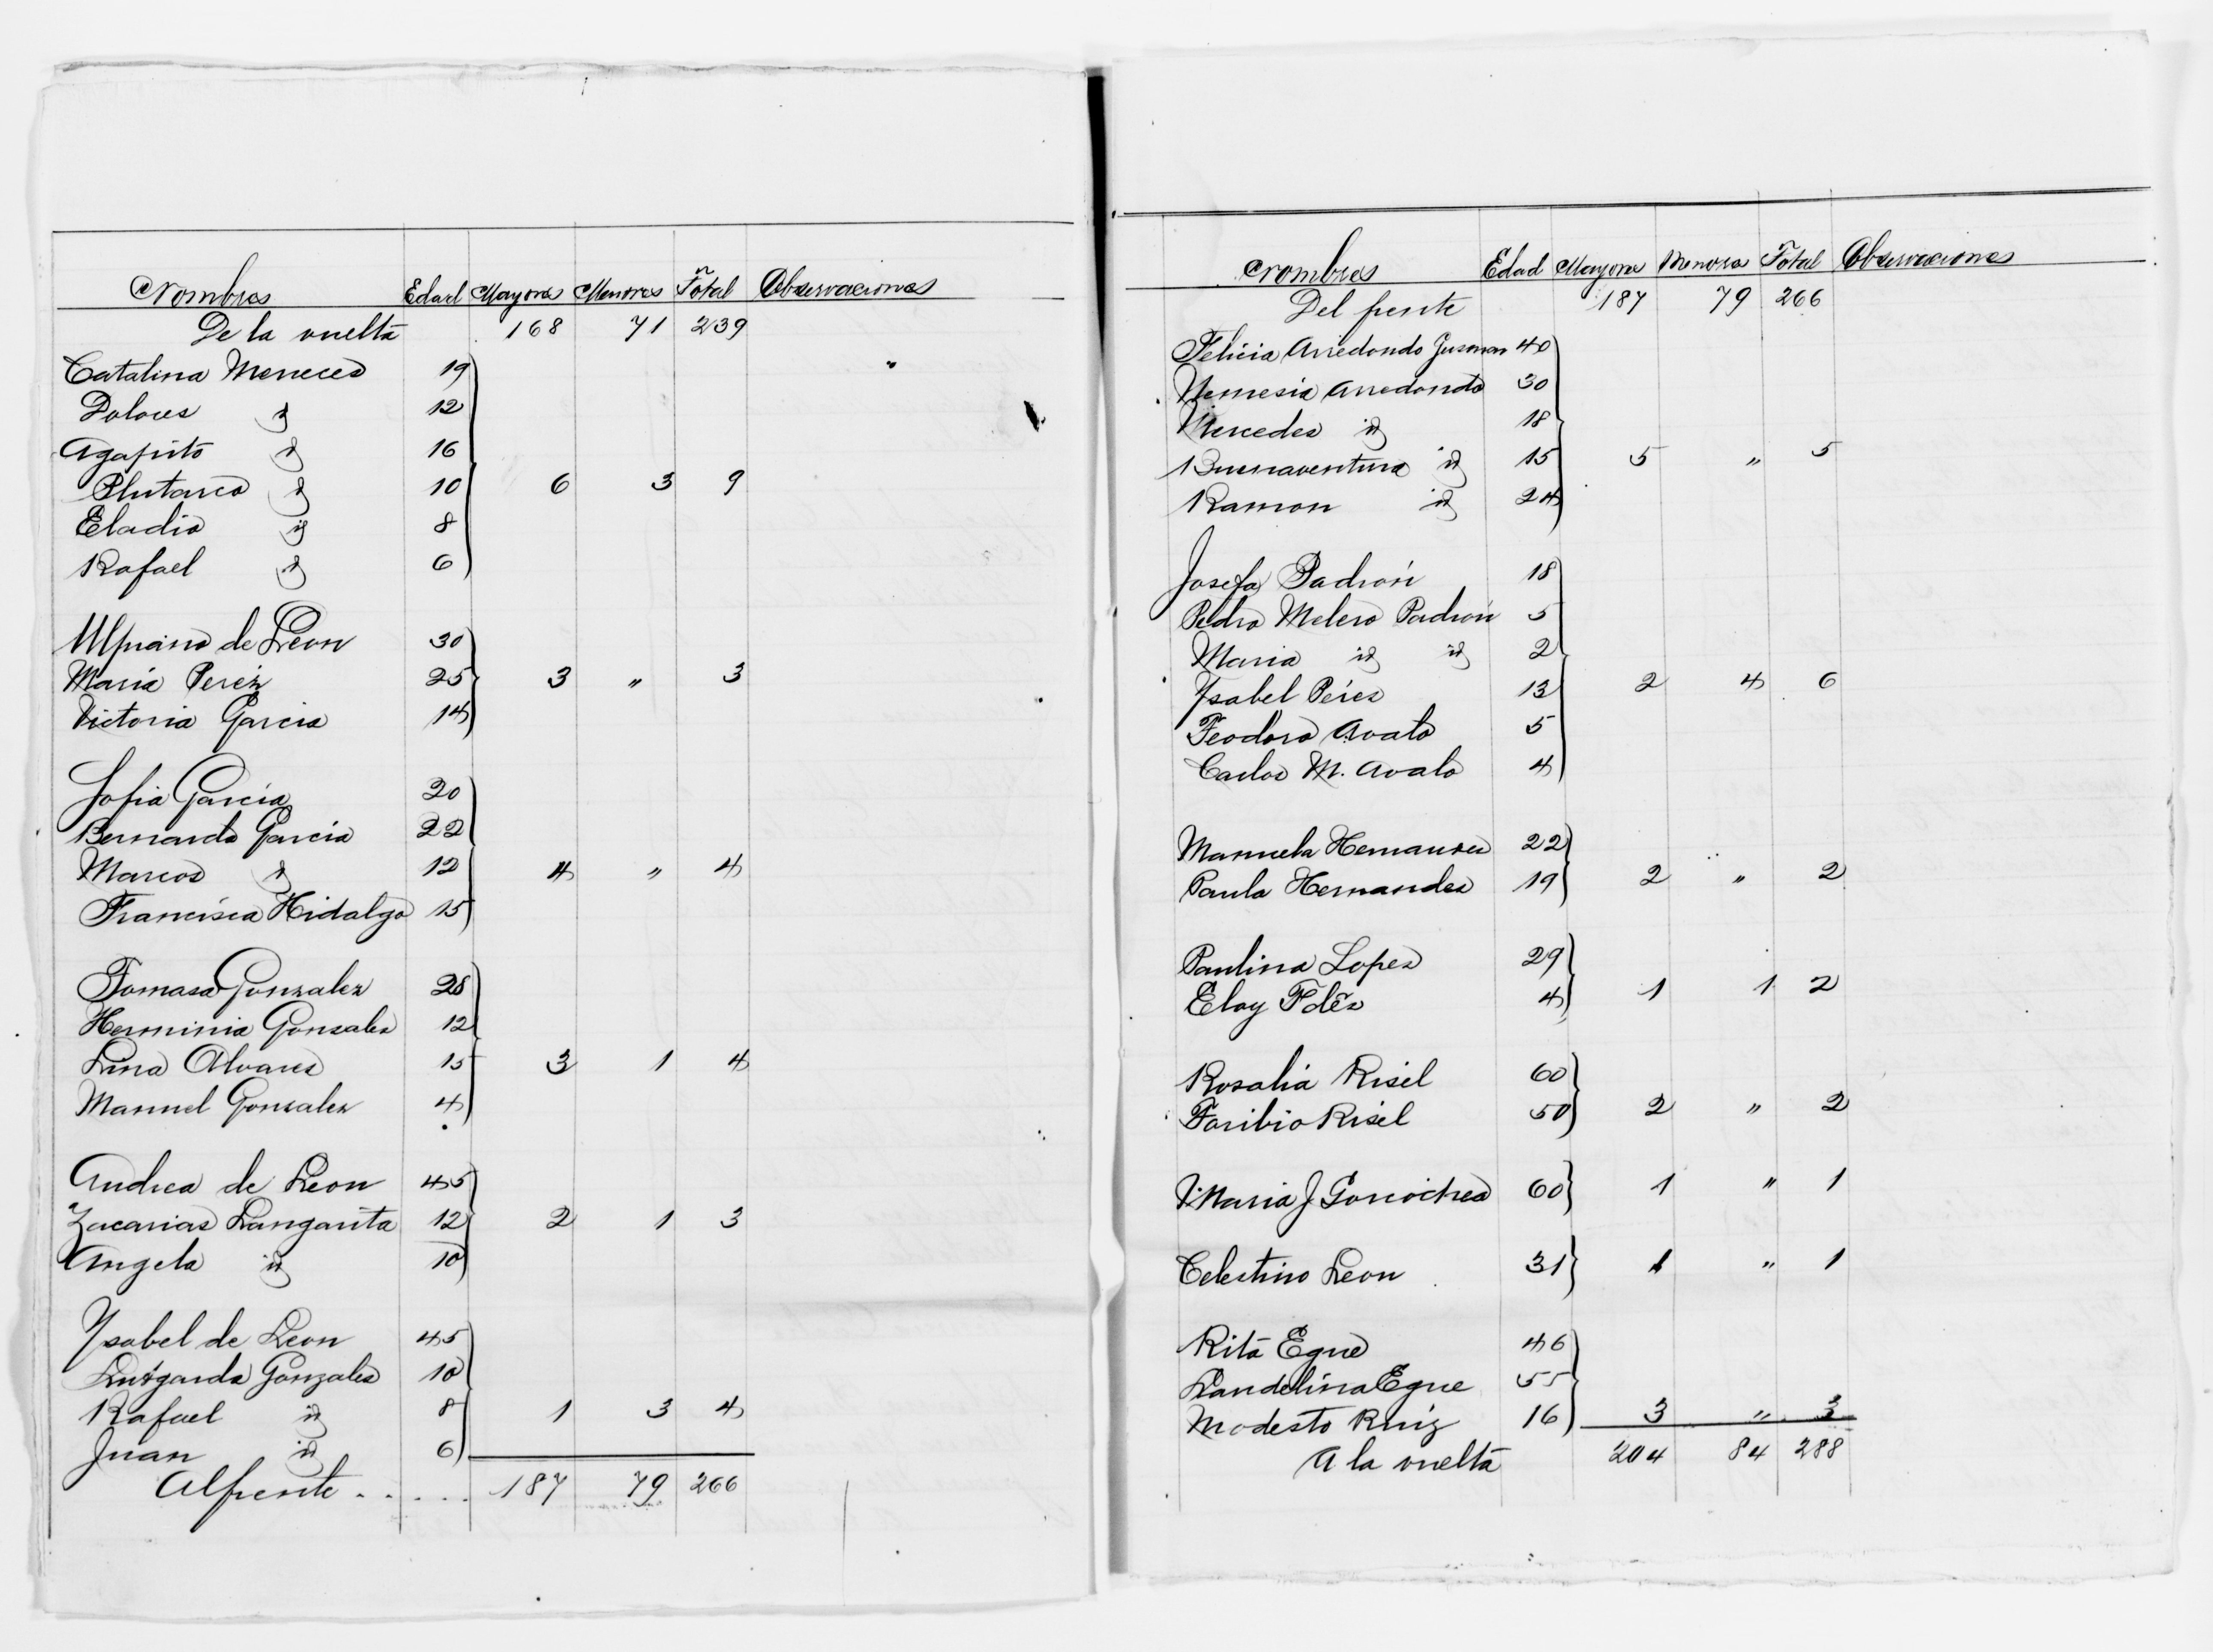 Nombres Edad Mayores Menores Total Observaciones
De la vuelta 168 71 239
Catalina Meneces 19
Dolores id 12
Agapito id 16
Plutarco id 10 6 3 9
Eladio id 8
Rafael id 6
Ulpiano de Leon 30
Maria Perez 25 3 " 3
Victoria Garcia 14
Sofia Garcia 20
Bernardo Garcia 22
Marcos id 12 4 " 4
Francisca Hidalgo 15
Tomasa Gonzalez 28
Herminia Gonzalez 12
Lina Alvares 15 3 1 4
Manuel Gonzalez 4
Andrea de Leon 45
Zacarias Langarita 12 2 1 3
Angela id 10
Ysabel de Leon 45
Lutgarda Gonzales 10
Rafael id 8 1 3 4
Juan id 6
Al frente ..... 187 79 266
Nombres Edad Mayores Menores Total Observaciones
Del frente 187 79 266
Felicia Arredondo Gusman 40
Nemesia Arredondo 30
Mercedes id 18
Buenaventura id 15 5 " 5
Ramon id 24
Josefa Padrón 18
Pedro Melero Padrón 5
Maria id id 2
Ysabel Péres 13 2 4 6
Teodoro Ovalo 5
Carlos M. Ovalo 4
Manuela Hernandes 22
Paula Hernandes 19 2 " 2
Paulina Lopez 29
Eloy Fdes 4 1 1 2
Rosalia Risel 60
Toribio Risel 50 2 " 2
Maria J Goicochea 60 1 " 1
Celestino Leon 31 1 " 1
Rita Egue 46
Landelina Egue 55
Modesto Ruiz 16 3 " 3
A la vuelta 204 84 288